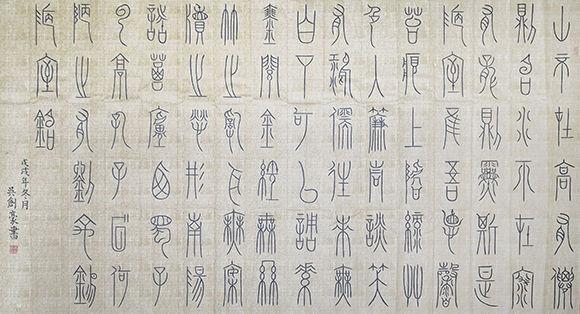 山不在高有僊
則名水不在深
有龍則靈斯是
陋室惟吾德馨
苔痕上階綠艸
色入簾青談笑
有鴻儒往來無
白丁可以調素
琴閱金經無絲
竹之亂耳無案
牘之勞形南陽
諸葛廬西蜀子
云亭孔子曰何
陋之有劉禹錫
陋室銘
戊戌年冬月
吳創豪書